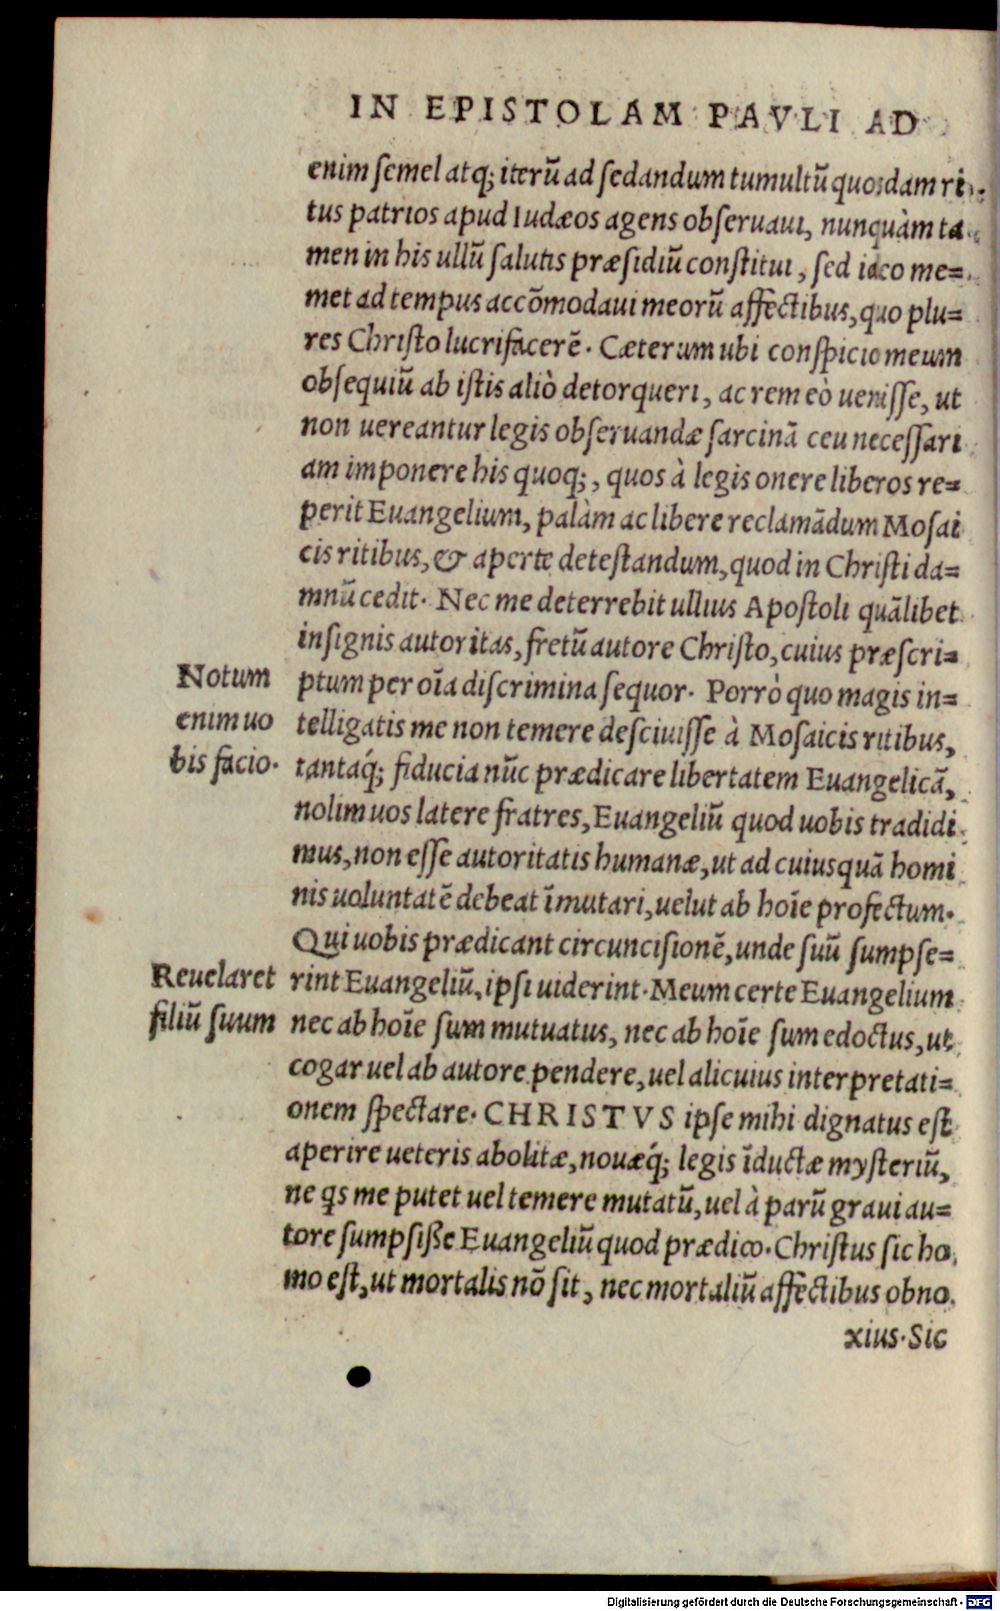 IN EPISTOLAM PAVLI AD
enim semel atq; iterũ ad sedandum tumultũ quosdam ri-
tus patrios apud Iudæos agens obseruaui, nunquàm ta-
men in his ullũ salutis præsidiũ constitui, sed ideo me=
met ad tempus accõmodaui meorũ affectibus, quo plu=
res Christo lucrifacerẽ. Cæterum ubi conspicio meum
obsequiũ ab istis aliò detorqueri, ac rem eò uenisse, ut
non uereantur legis obseruandæ sarcinã ceu necessari
am imponere his quoq;, quos à legis onere liberos re=
perit Euangelium, palàm ac libere reclamãdum Mosai
cis ritibus, & aperte detestandum, quod in Christi da=
mnũ cedit. Nec me deterrebit ullius Apostoli quãlibet
insignis autoritas, fretũ autore Christo, cuius præscri=
Notum
ptum per oĩa discrimina sequor. Porrò quo magis in=
enim uo
telligatis me non temere desciuisse à Mosaicis ritibus,
bis facio.
tantaq́; fiducia nũc prædicare libertatem Euangelicã,
nolim uos latere fratres, Euangeliũ quod uobis tradidi
mus, non esse autoritatis humanæ, ut ad cuiusquã homi
nis uoluntatẽ debeat ĩmutari, uelut ab hoĩe profectum.
Qui uobis prædicant circuncisionẽ, unde suũ sumpse=
Reuelaret
rint Euangeliũ, ipsi uiderint. Meum certe Euangelium
filiũ suum
nec ab hoĩe sum mutuatus, nec ab hoĩe sum edoctus, ut
cogar uel ab autore pendere, uel alicuius interpretati=
onem spectare. CHRISTVS ipse mihi dignatus est
aperire ueteris abolitæ, nouæq́; legis ĩductæ mysteriũ,
ne qs me putet uel temere mutatũ, uel à parũ graui au=
tore sumpsiße Euangeliũ quod prædico. Christus sic ho
mo est, ut mortalis nõ sit, nec mortaliũ affectibus obno
xius. Sic
Digitalisierung gefördert durch die Deutsche Forschungsgemeinschaft - DFG